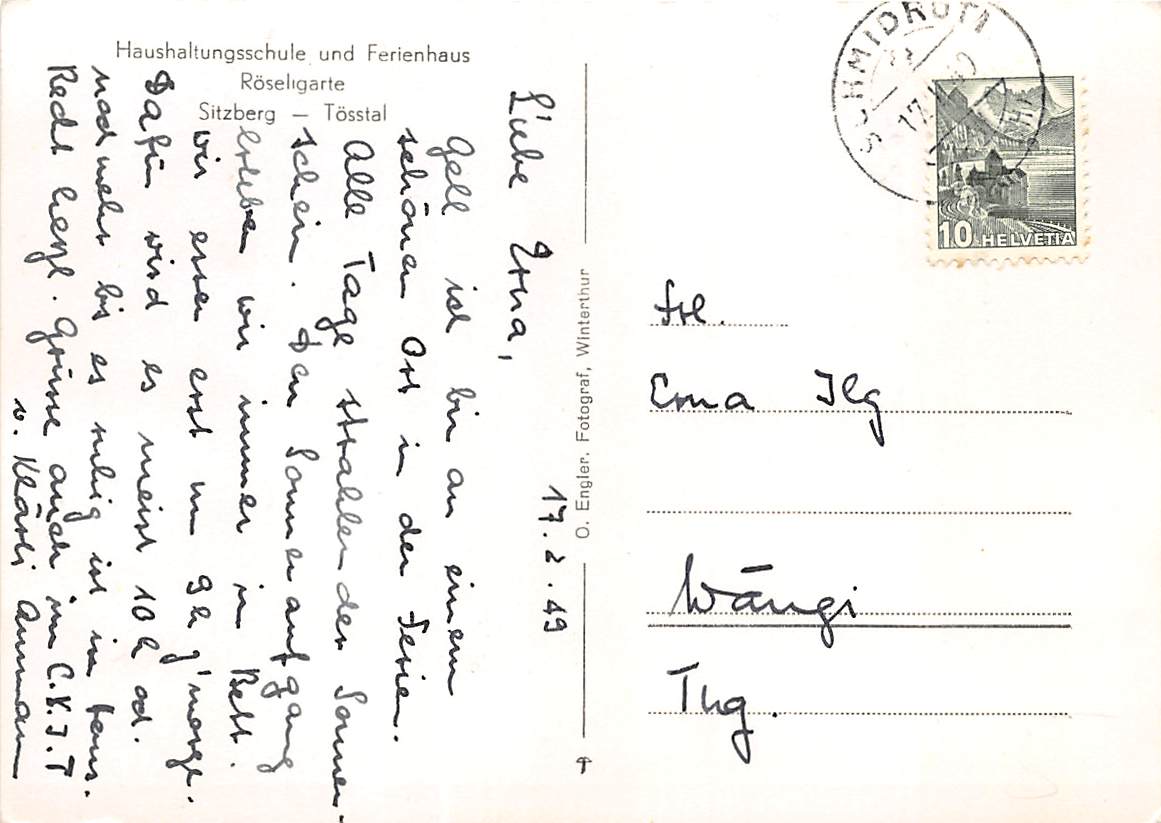 Haushaltungsschule und Ferienhaus
Röseligarte
Sitzberg – Tösstal
17. 2. 49
Liebe Erna,
Gell ich bin an einem
schönen Ort in den Ferien.
Alle Tage strahlender Sonnen-
schein. Den Sonnenaufgang
erleben wir immer im Bett.
wir essen erst um 9h z'morge.
Dafür wird es meist 10h od.
noch mehr bis es ruhig ist im Haus.
Recht herzl. Grüsse auch im C.V.J.T
v. Klärli Ammann
O. Engler, Fotograf, Winterthur
SCHMIDRÜTI
17.
10 HELVETIA
Frl.
Erna Ilg
Wängi
Thg.